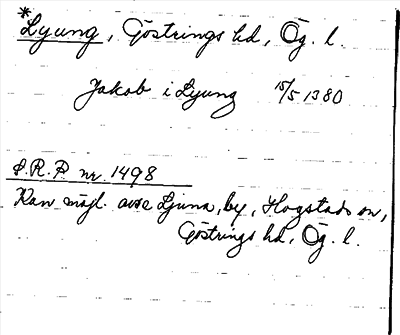 *Lyung, Göstrings hd, Ög. l.
Jakob i Lyung 15/5 1380
S.R.P. nr 1498
Kan möjl. avse Ljuna, by, Hogstads sn,
Göstrings hd, Ög. l.